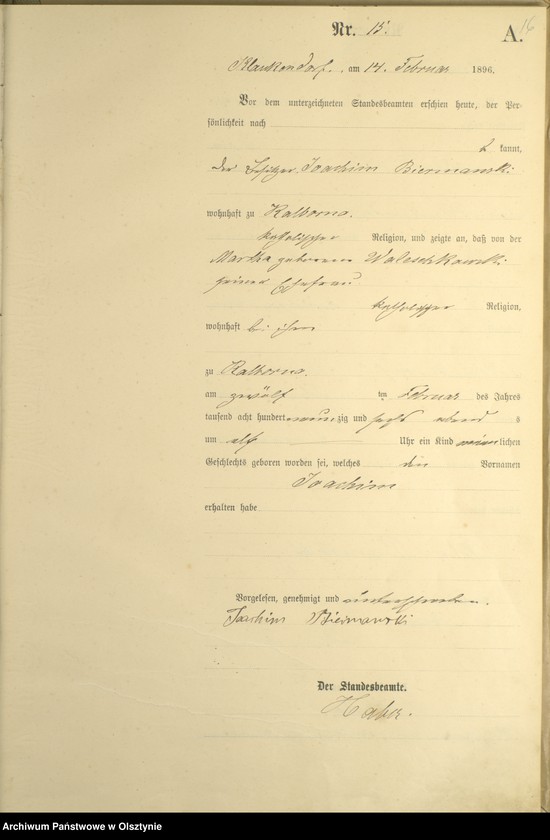 Nr. 15.
A.
16
Klaukendorf, am 14. Februar 1896.
Vor dem unterzeichneten Standesbeamten erschien heute, der Per-
sönlichkeit nach
kannt,
der Besitzer Joachim Biermanski
wohnhaft zu Kalborno.
katholischer Religion, und zeigte an, daß von der
Martha geborenen
seiner Ehefrau
katholischer Religion,
wohnhaft bei ihm
zu Kalborno.
am zwölf ten Februar des Jahres
tausend acht hundert neunzig und sechs abend s
um elf Uhr ein Kind männlichen
Geschlechts geboren worden sei, welches den Vornamen
Joachim
erhalten habe
Vorgelesen, genehmigt und unterschrieben.
Joachim Biermanski
Der Standesbeamte.
Archiwum Państwowe w Olsztynie